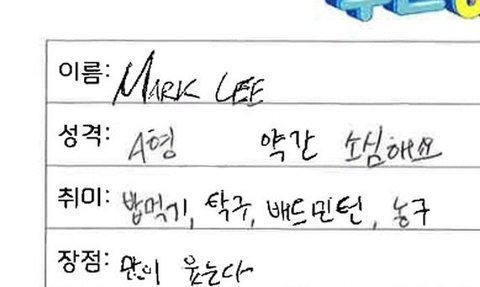 이름: MARK LEE
성격: A형 약간 소심해요
취미: 밥먹기, 탁구, 배드민턴, 농구
장점: 많이 웃는다